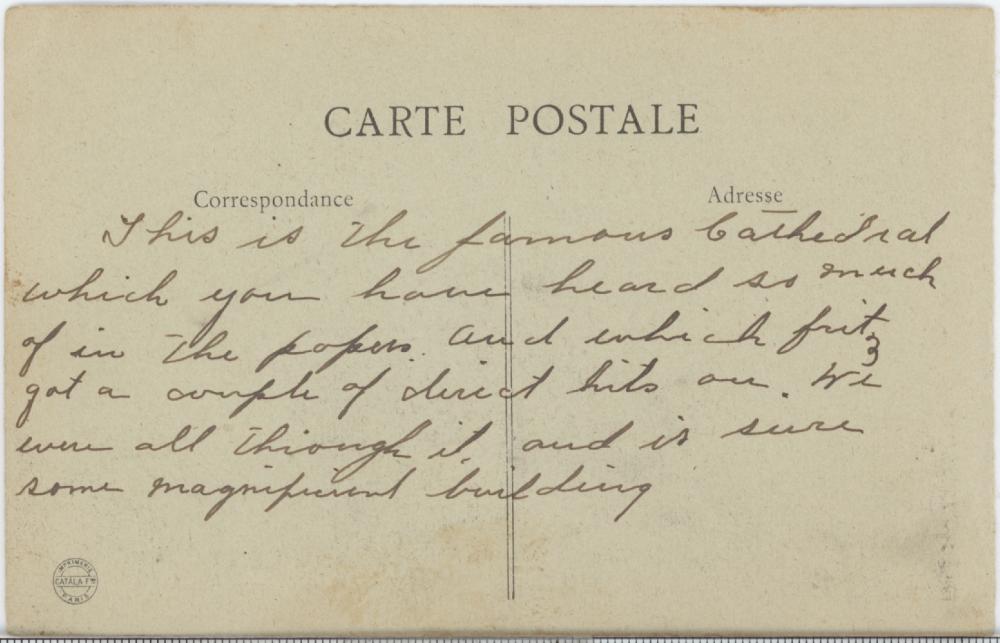 CARTE POSTALE
Correspondance
Adresse
This is the famous Cathedral
which you have heard so much
of in the papers. and which fritz
got a couple of direct hits on. We
were all through it. and is sure
some magnificent building
IMPRIMERIE
CATALA Frs
PARIS